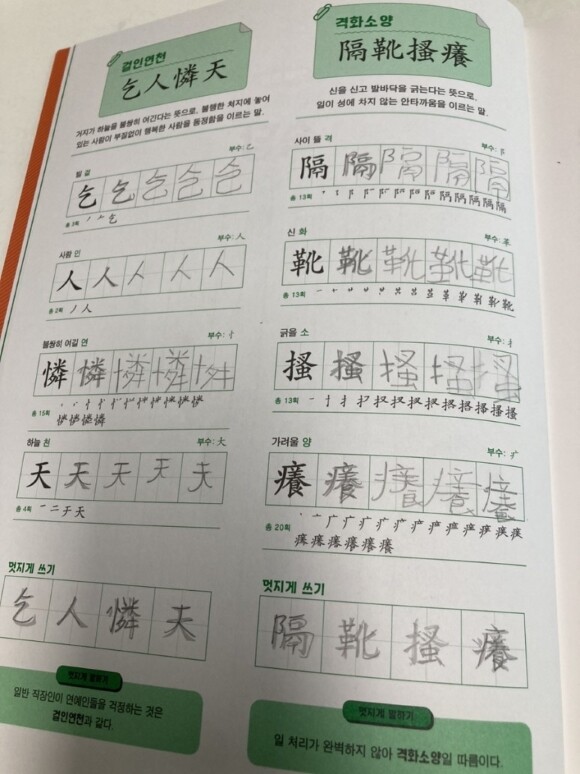 걸인연천
乞人憐天
거지가 하늘을 불쌍히 여긴다는 뜻으로, 불행한 처지에 놓여
있는 사람이 부질없이 행복한 사람을 동정함을 이르는 말.
빌 걸
부수: 乙
乞 乞 乞 乞 乞
총 3획
사람 인
부수: 人
人 人 人 人 人
총 2획 丿 人
불쌍히 여길 연
부수: 忄
憐 憐 憐 憐 憐
총 15획
하늘 천
부수: 大
天 天 天 天 夫
총 4획 一 二 于 天
멋지게 쓰기
乞 人 憐 夫
멋지게 말하기
일반 직장인이 연예인들을 걱정하는 것은
걸인연천과 같다.
격화소양
隔靴搔癢
신을 신고 발바닥을 긁는다는 뜻으로,
일이 성에 차지 않는 안타까움을 이르는 말.
사이 뜰 격
부수: 阝
隔 隔 隔 隔 隔
총 13획
신 화
부수: 革
靴 靴 靴 靴 靴
총 13획
긁을 소
부수: 扌
搔 搔 搔 搔 搔
총 13획
가려울 양
부수: 疒
癢 癢 癢 癢 癢
총 20획
멋지게 쓰기
隔 靴 搔 癢
멋지게 말하기
일 처리가 완벽하지 않아 격화소양일 따름이다.